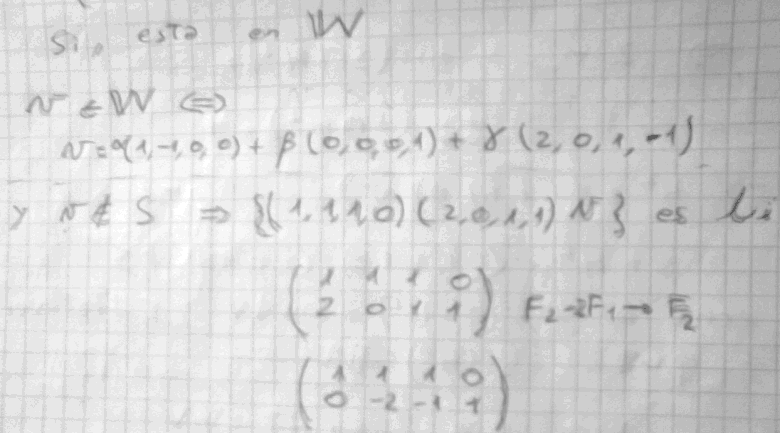 Si, esta en W
v ∈ W ⇔
v = α(1,-1,0,0) + β(0,0,0,1) + γ(2,0,1,-1)
y v ∉ S ⇒ {(1,1,1,0)(2,0,1,1) v} es li
(1 1 1 0
2 0 1 1) F2-2F1→F2
(1 1 1 0
0 -2 -1 1)